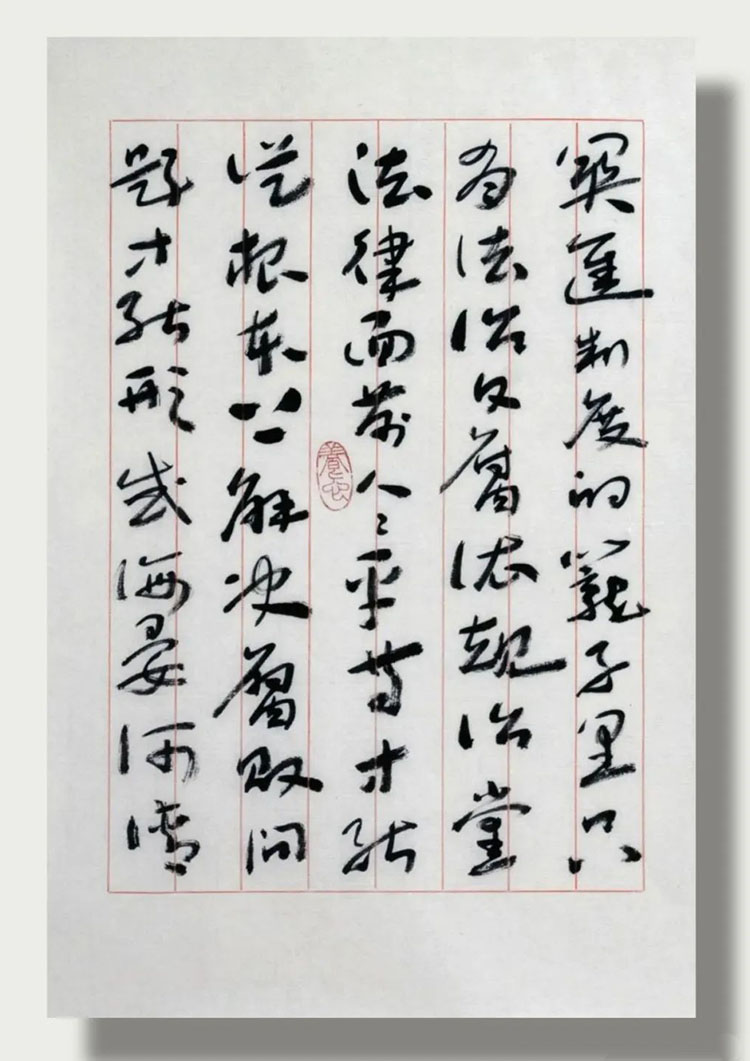 关进制度的笼子里只
有法治反腐依规治党
法律面前人人平等才能
从根本上解决腐败问
题才能形成海晏河清